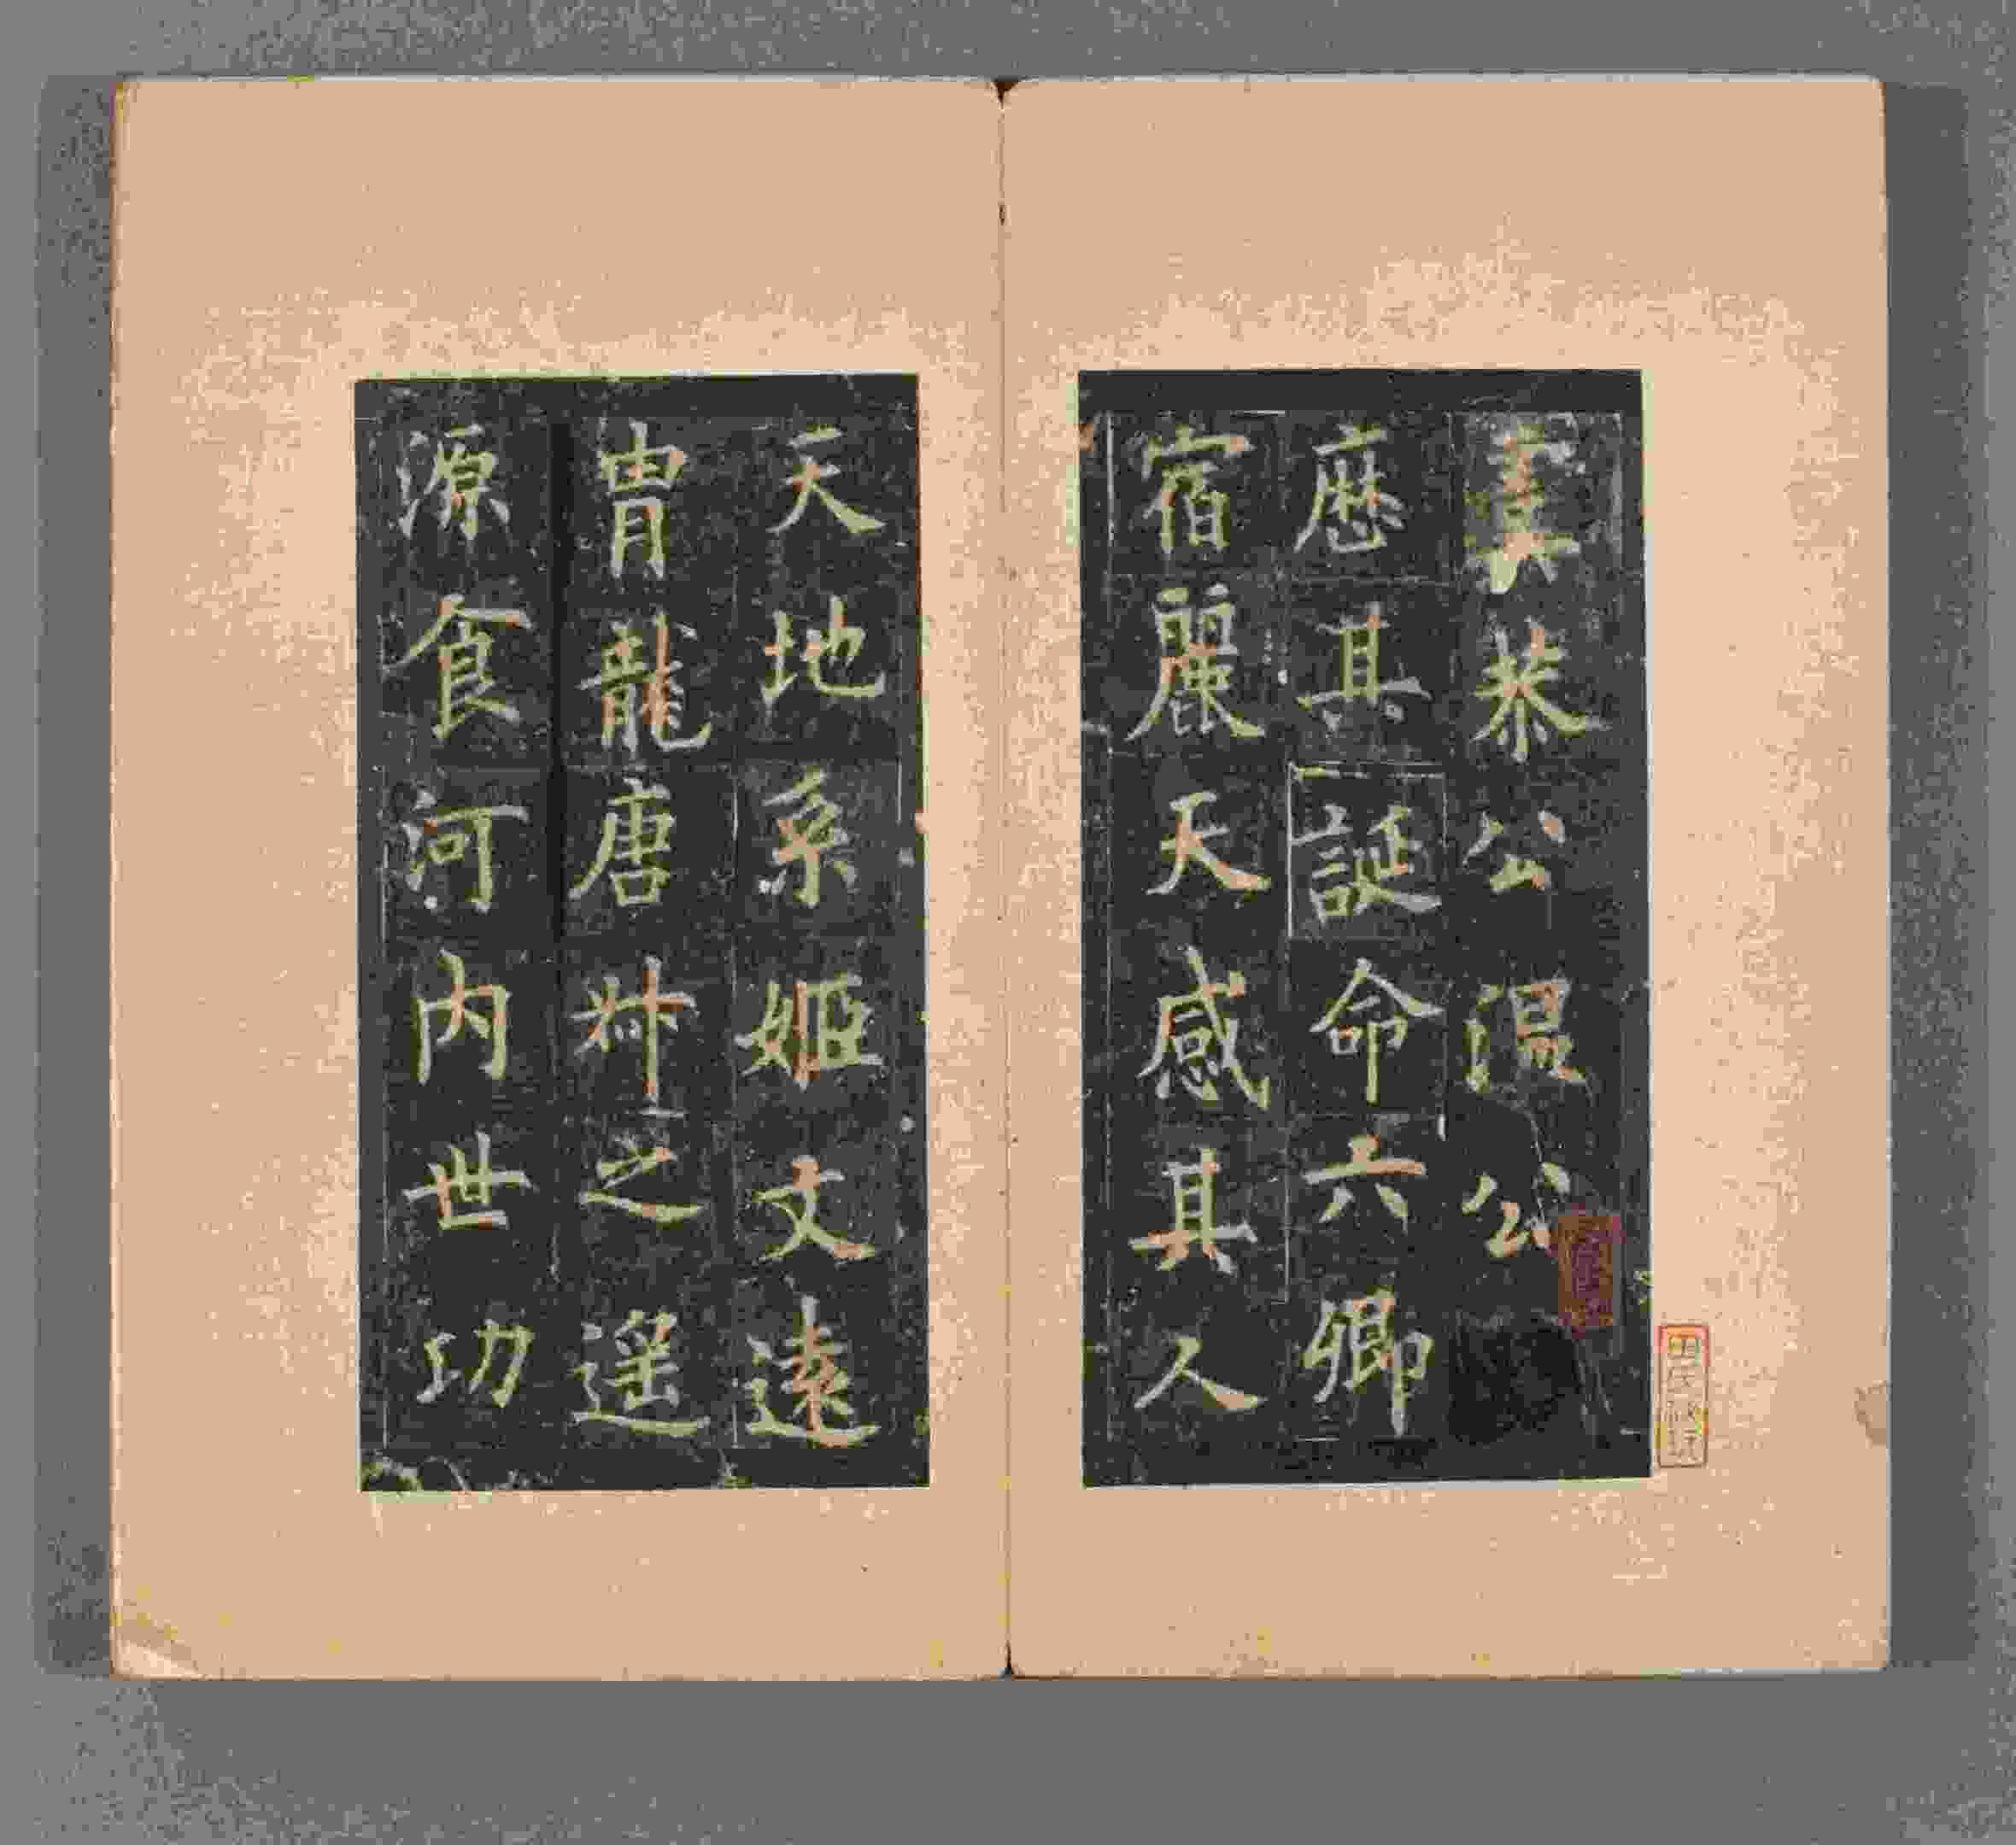 虞恭公温公
歷其誕命六卿
宿麗天感其人
天地系姬文遠
胄龍唐叔之遥
源食河内世功